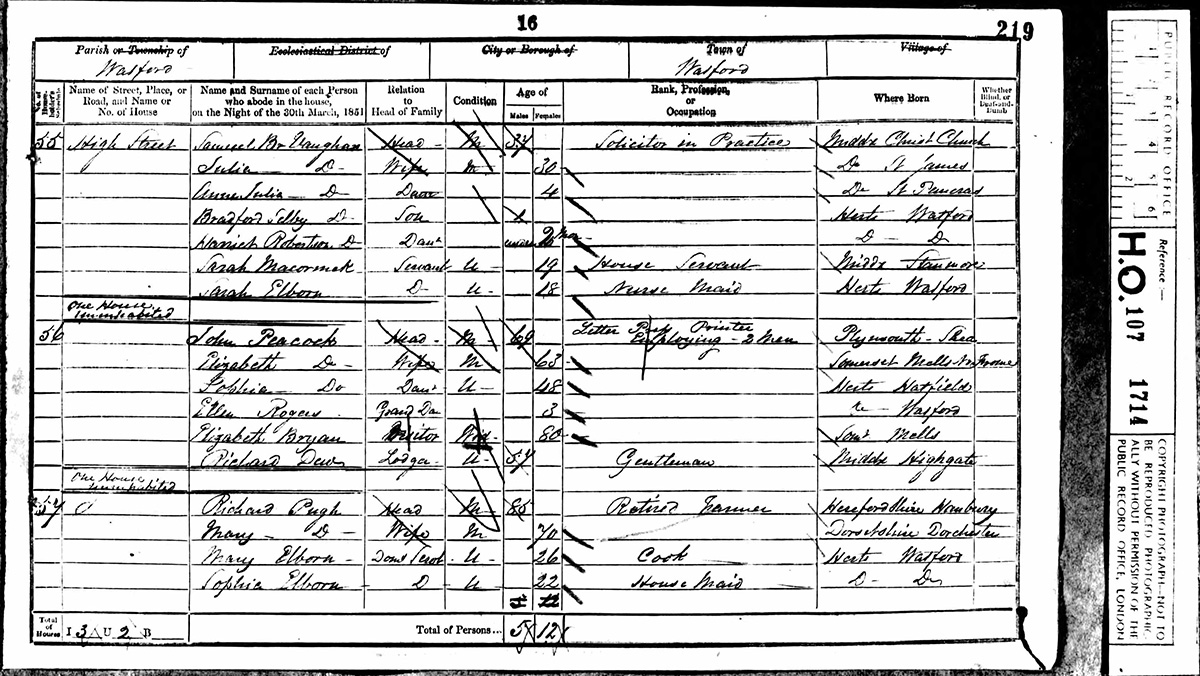 16
219
Parish or Township of
Watford
Ecclesiastical District of
City or Borough of
Town of
Watford
Village of
Name of Street, Place, or Road, and Name or No. of House
Name and Surname of each Person who abode in the house, on the Night of the 30th March, 1851
Relation to Head of Family
Condition
Age of
Males Females
Rank, Profession, or Occupation
Where Born
Whether Blind, or Deaf-and-Dumb
55 High Street Samuel Br Vaughan Head - M 37 Solicitor in Practice Middx Christ Church
Julia D- Wife M 30 Do St James
Anne Julia - D Daur 4 Do St Pancras
Bradford Selby D- Son Herts Watford
Harriet Robertson D Daur 2 Mos D - D
Sarah Macormak Servant U - 19 House Servant Middx Stanmore
Sarah Elborn D U - 18 Nurse Maid Herts Watford
One House uninhabited
56 John Peacock Head - M - 69 Letter Press Printer Employing - 2 Men Plymouth -
Elizabeth Do - Wife M 63 Somerset Mells Nr Frome
Sophia - Do Daur U - 48 Herts Hatfield
Ellen Rogers Grand Da 3 - Watford
Elizabeth Bryan Visitor Wid- 80 Somt Mells
Richard Dew Lodger - U - 57 Gentleman Middx Highgate
One House uninhabited
57 Richard Pugh Head M - 85 Retired Farmer Herefordshire
Mary - D - Wife M 70 Dorsetshire Dorchester
Mary Elborn - Dom Servt U - 26 Cook Herts Watford
Sophia Elborn - D U 22 House Maid D - Do
Total of Houses I 3 U 2 B
Total of Persons... 5 12
PUBLIC RECORD OFFICE
1 2 3 4 5 6
1 2
Reference :-
H.O. 107 1714
COPYRIGHT PHOTOGRAPH—NOT TO BE REPRODUCED PHOTOGRAPHICALLY WITHOUT PERMISSION OF THE PUBLIC RECORD OFFICE, LONDON